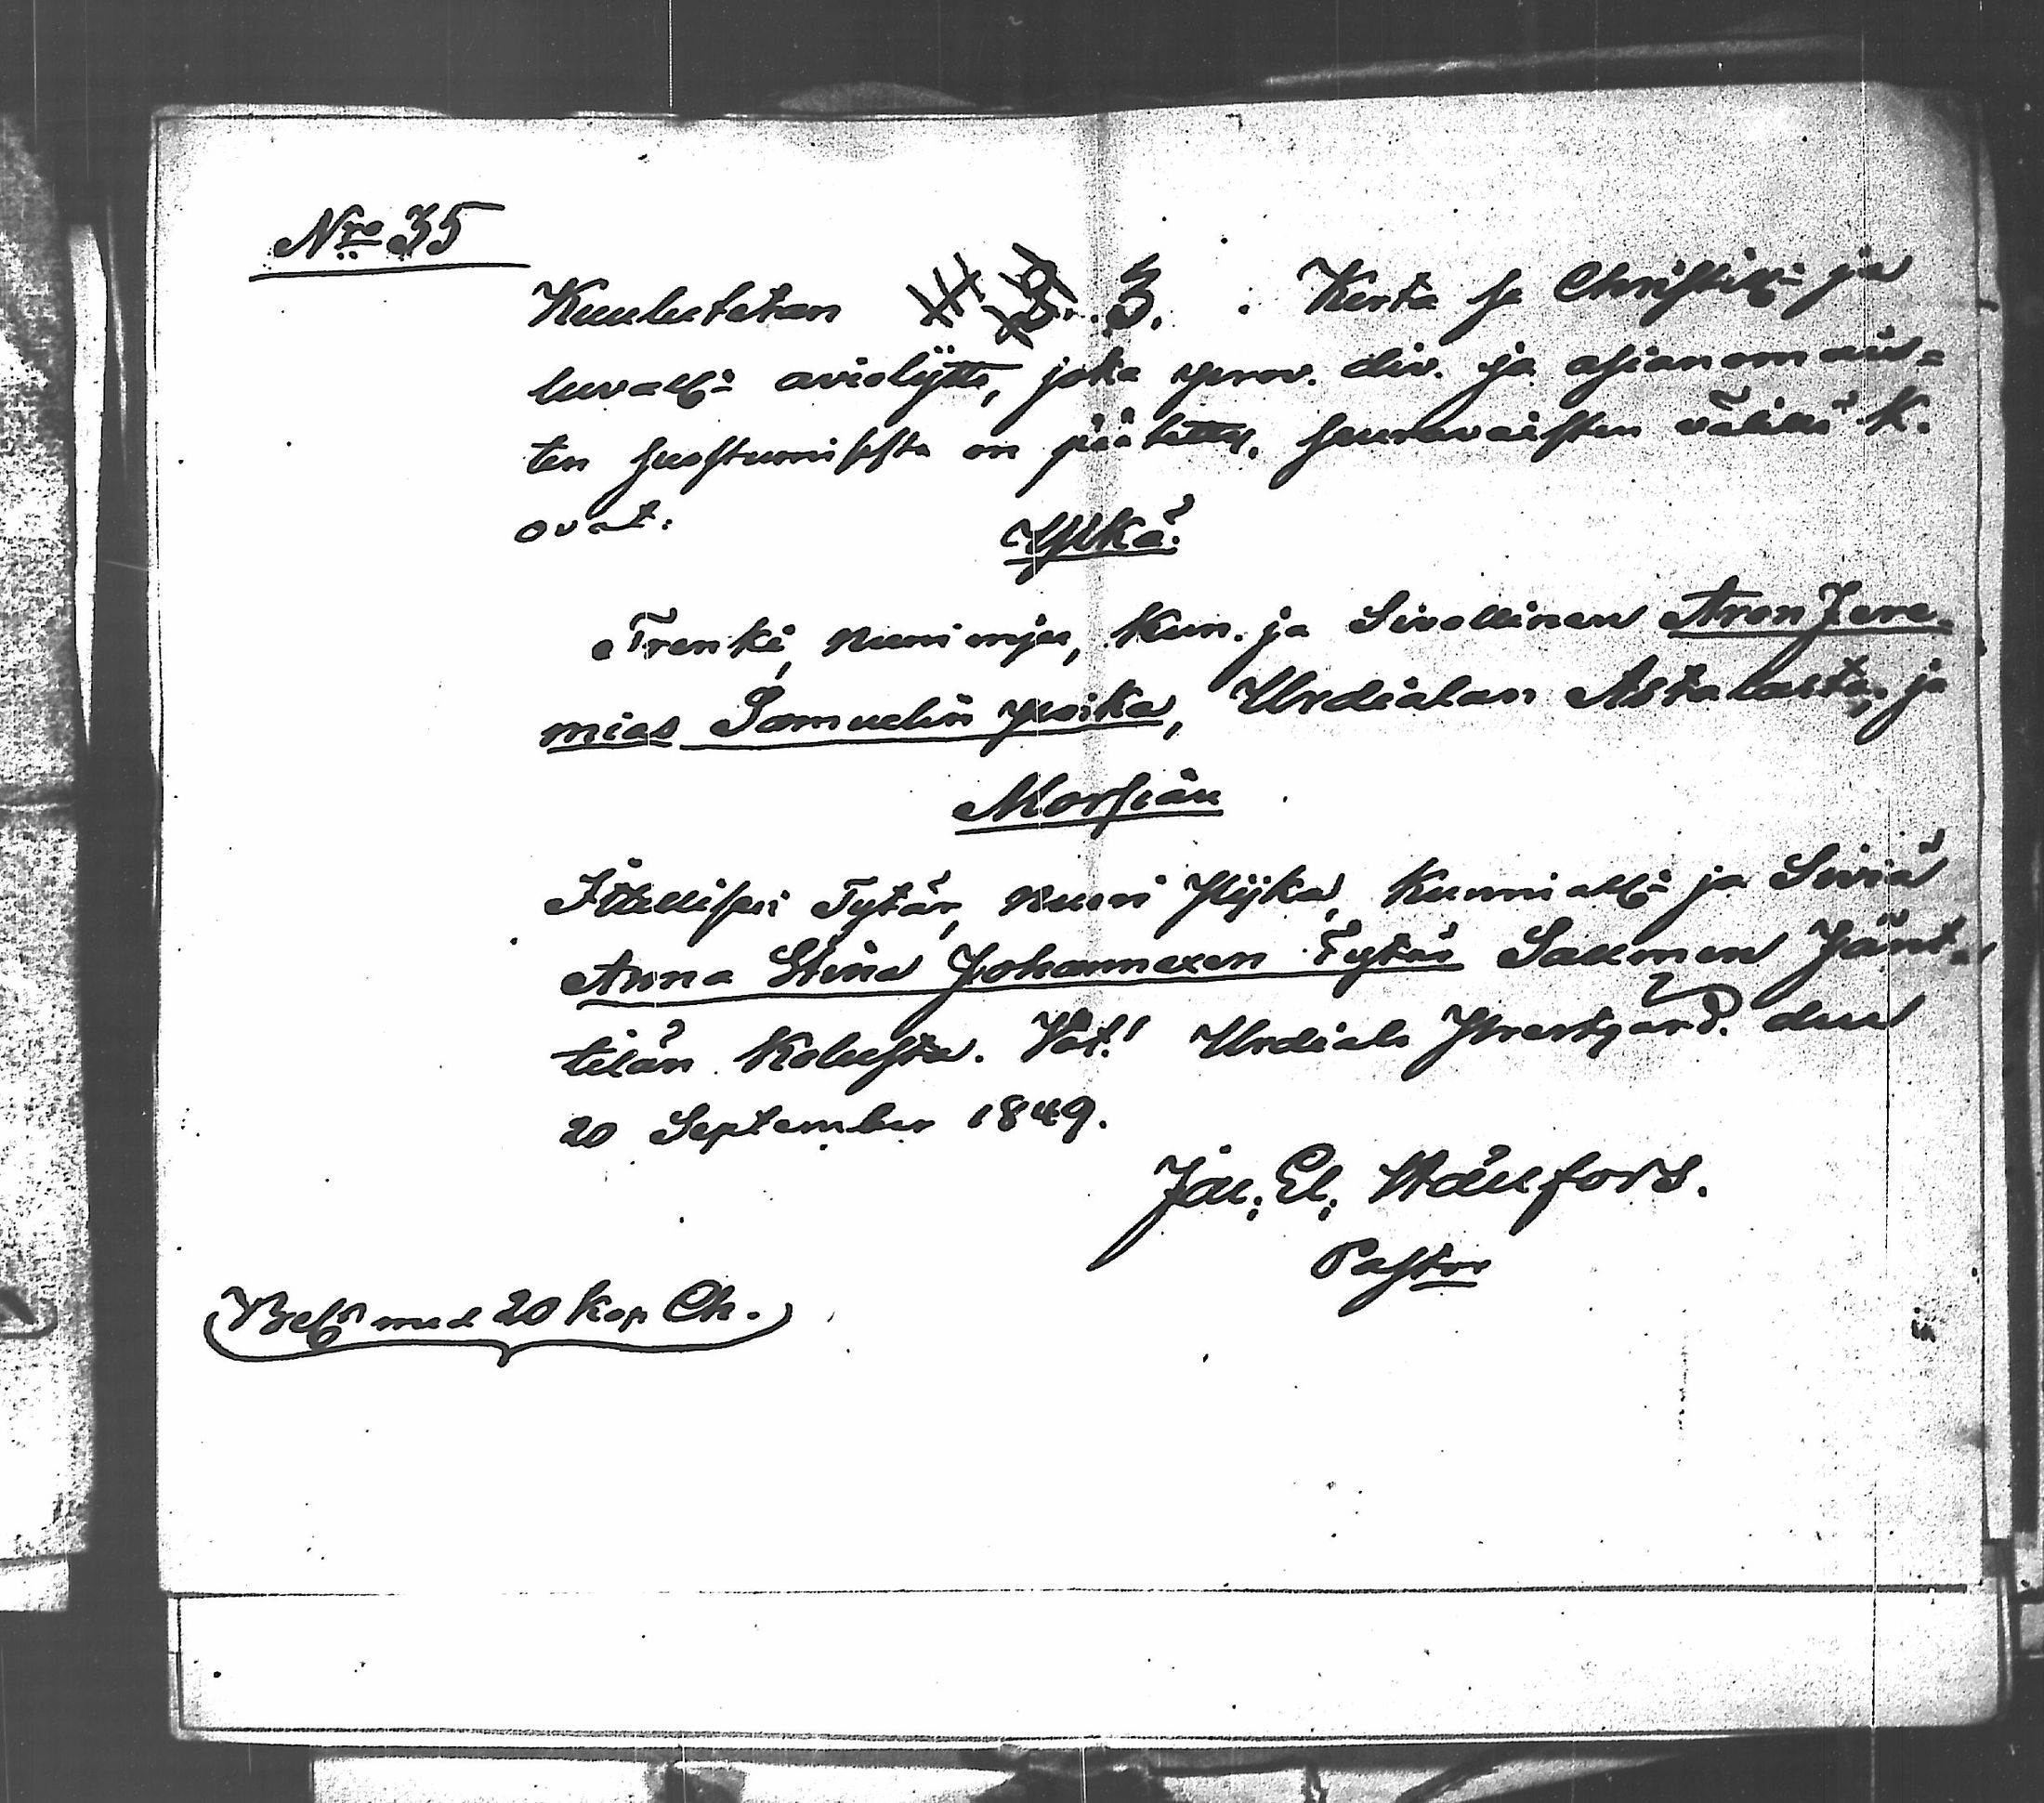 Nro 35
Kuulutetan 3. Kerta se Christill: ja
luvall: avioliitto, joka prov. div. ja asianomais=
ten suostumisesta on päätetty, seuravaisten välillä K.
ovat:
Ylkä:
Trenki, nuori mjes, Kun. ja Sivollinen Aron Jere-
mias Samuelin poika, Urdialan Astalasta, ja
Morsian
Itellisen Tytär, nuori Pijka, Kunniall: ja Siviä
Anna Stina Johannexen Tytär Salmen Jänt-
tilän Kylästä. Vät! Urdiala Prestgård. den
20 September 1849.
Jac. El. Wallfors.
Pastor
Bett med 20 Kop Ch.